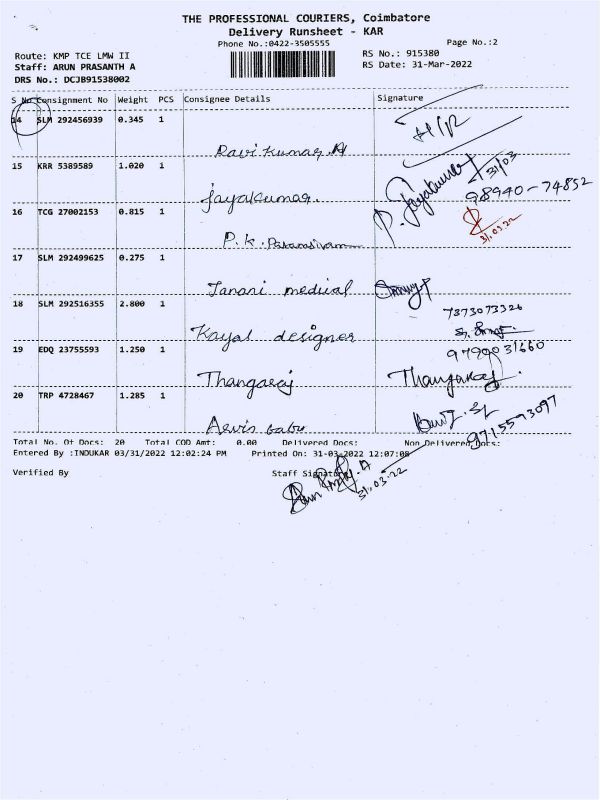 THE PROFESSIONAL COURIERS, Coimbatore
Delivery Runsheet - KAR
Phone No.:0422-3505555
Page No.:2
Route: KMP TCE LMW II
RS No.: 915380
Staff: ARUN PRASANTH A
RS Date: 31-Mar-2022
DRS No.: DCJB91538002
S No Consignment No Weight PCS Consignee Details Signature
14 SLM 292456939 0.345 1
Ravi Kumar
15 KRR 5389589 1.020 1
Jayakumar.
P. Jayakumar 31/03
98940-74852
16 TCG 27002153 0.815 1
P.K. Paramsivam
31.03.22
17 SLM 292499625 0.275 1
Janani medical
18 SLM 292516355 2.800 1
7373073326
Kayal designer
19 EDQ 23755593 1.250 1
9790031660
Thangaraj
Thangaraj.
20 TRP 4728467 1.285 1
Aevis babu
9715593097
Total No. Of Docs: 20 Total COD Amt: 0.00 Delivered Docs: Non Delivered Docs:
Entered By :INDUKAR 03/31/2022 12:02:24 PM Printed On: 31-03-2022 12:07:08
Verified By Staff Signature
31.03.22